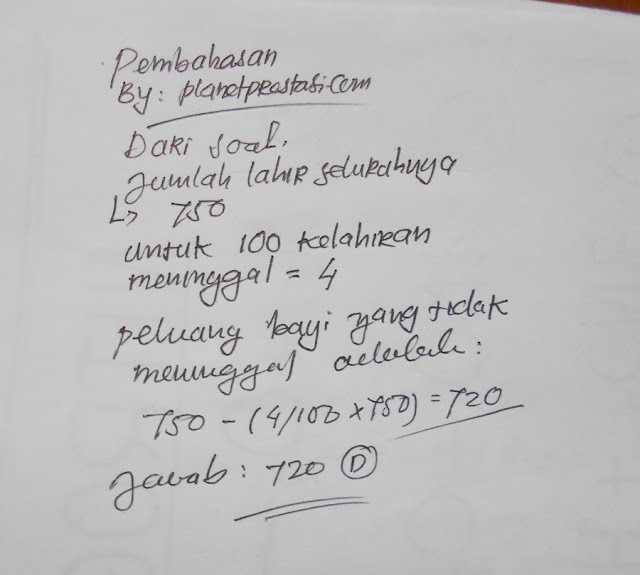 Pembahasan
By: planetpeastasi.com
Dari soal,
Jumlah lahir selurahnya
↳ 750
untuk 100 kelahiran
meninggal = 4
peluang bayi yang tidak
meninggal adalah:
750 - (4/100 x 750) = 720
Jawab: 720 D